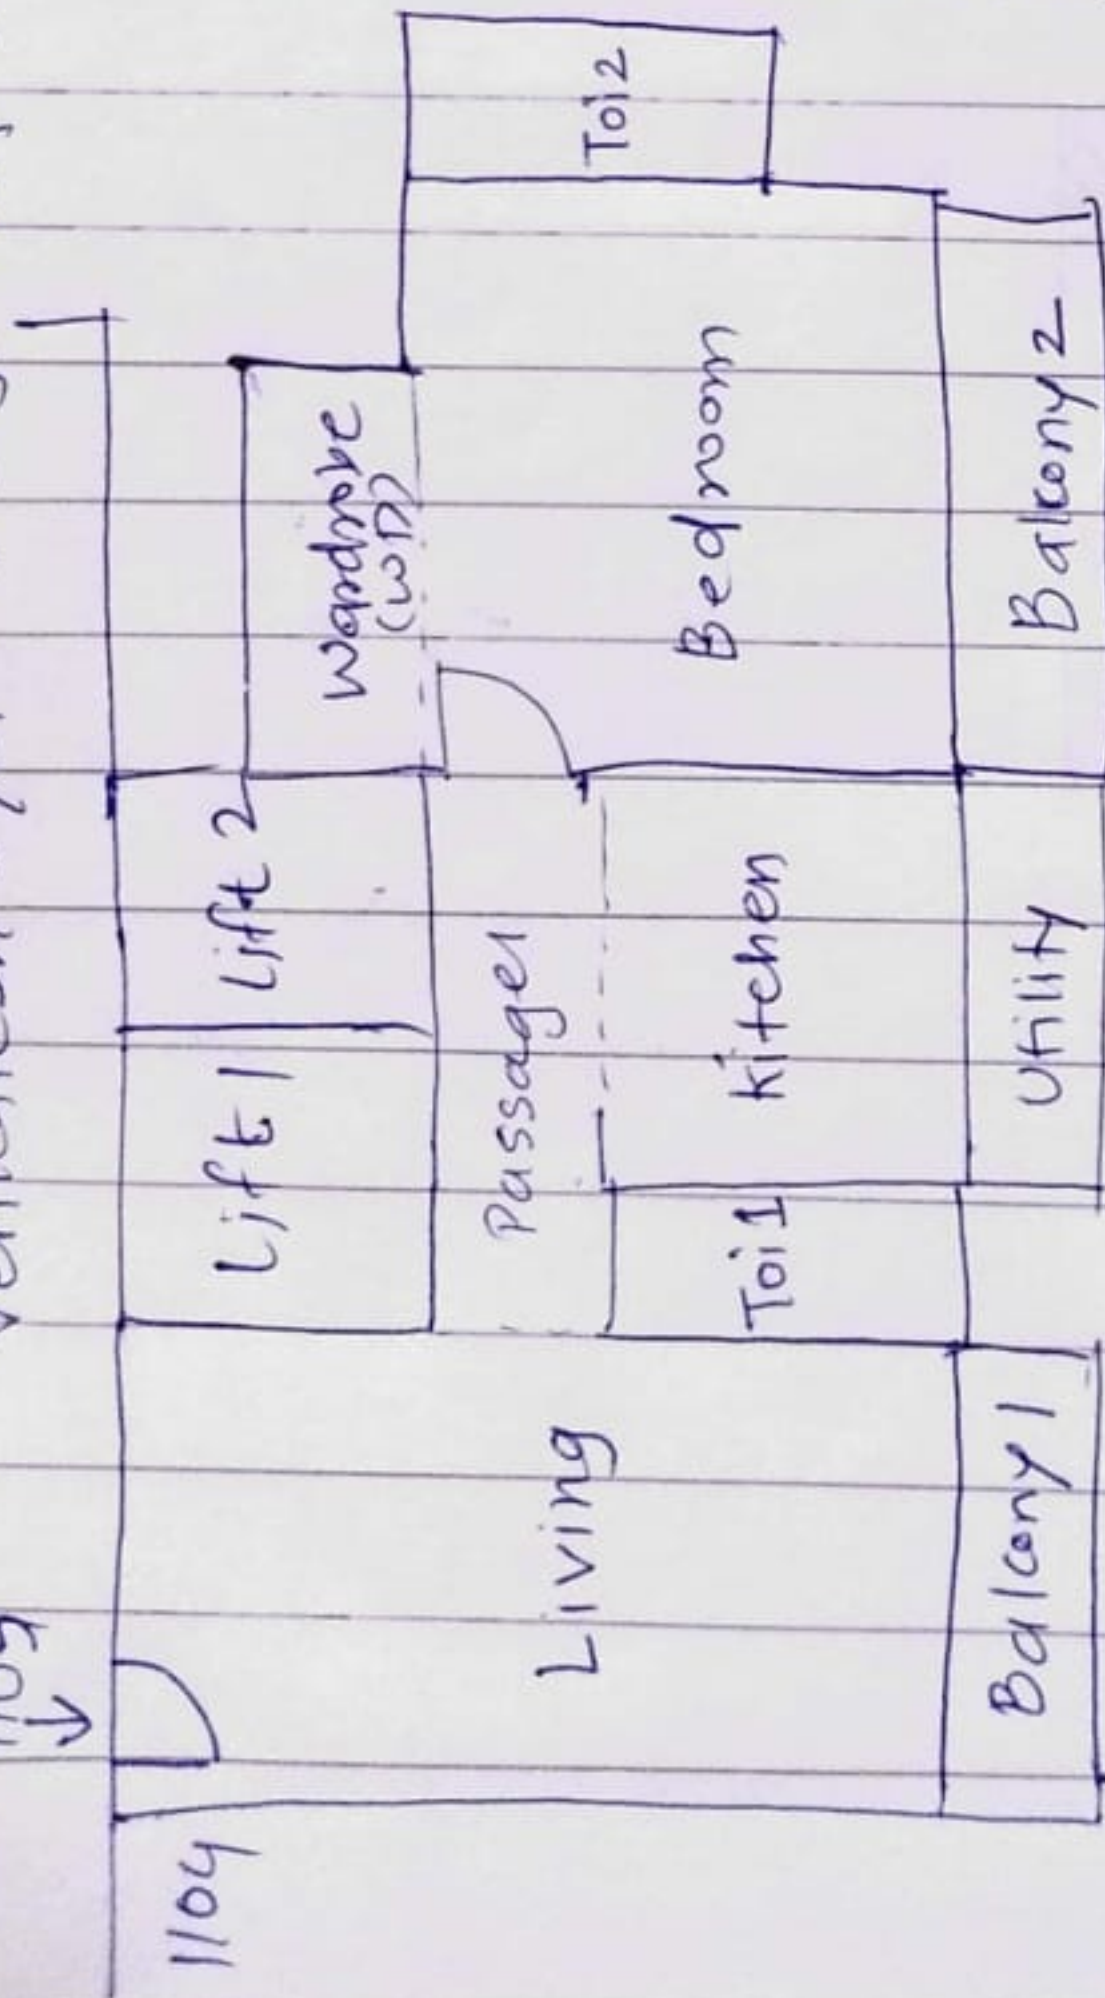 1104
Living
Balcony 1
Lift 1
Lift 2
Passage
Toi 1
Kitchen
Utility
Wardrobe
(WR)
Bedroom
Balcony 2
Toi 2